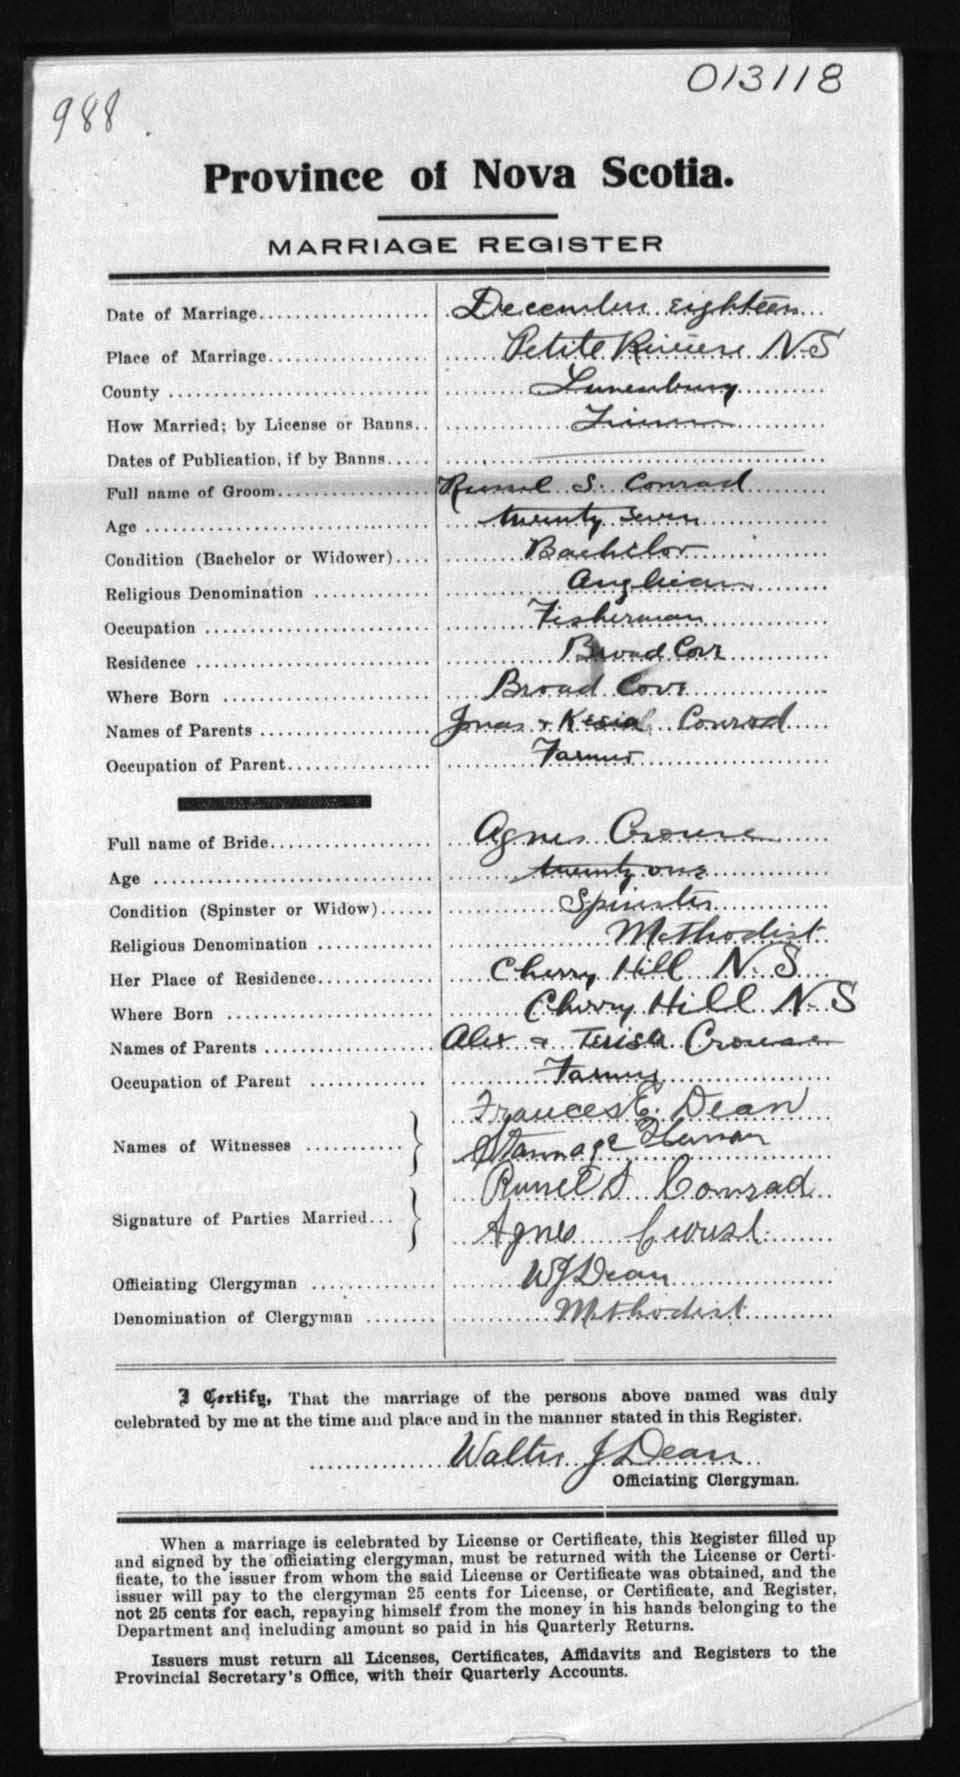 013118
988.
Province of Nova Scotia.
MARRIAGE REGISTER
Date of Marriage December eighteen
Place of Marriage Petite Riviere NS
County Lunenburg
How Married; by License or Banns
Dates of Publication, if by Banns
Full name of Groom Russel S. Conrad
Age twenty seven
Condition (Bachelor or Widower) Bachelor
Religious Denomination Anglican
Occupation Fisherman
Residence Broad Cove
Where Born Broad Cove
Names of Parents Jonas & Kesiah Conrad
Occupation of Parent Farmer
Full name of Bride Agnes Crouse
Age twenty one
Condition (Spinster or Widow) Spinster
Religious Denomination Methodist
Her Place of Residence Cherry Hill N.S.
Where Born Cherry Hill N.S
Names of Parents Alex & Teresa Crouse
Occupation of Parent Farmer
Frances E. Dean
Names of Witnesses
Russel S Conrad
Signature of Parties Married
Agnes Crouse
Officiating Clergyman WJ Dean
Denomination of Clergyman Methodist
I Certify, That the marriage of the persons above named was duly
celebrated by me at the time and place and in the manner stated in this Register.
Walter J Dean
Officiating Clergyman.
When a marriage is celebrated by License or Certificate, this Register filled up
and signed by the officiating clergyman, must be returned with the License or Certi-
ficate, to the issuer from whom the said License or Certificate was obtained, and the
issuer will pay to the clergyman 25 cents for License, or Certificate, and Register,
not 25 cents for each, repaying himself from the money in his hands belonging to the
Department and including amount so paid in his Quarterly Returns.
Issuers must return all Licenses, Certificates, Affidavits and Registers to the
Provincial Secretary's Office, with their Quarterly Accounts.